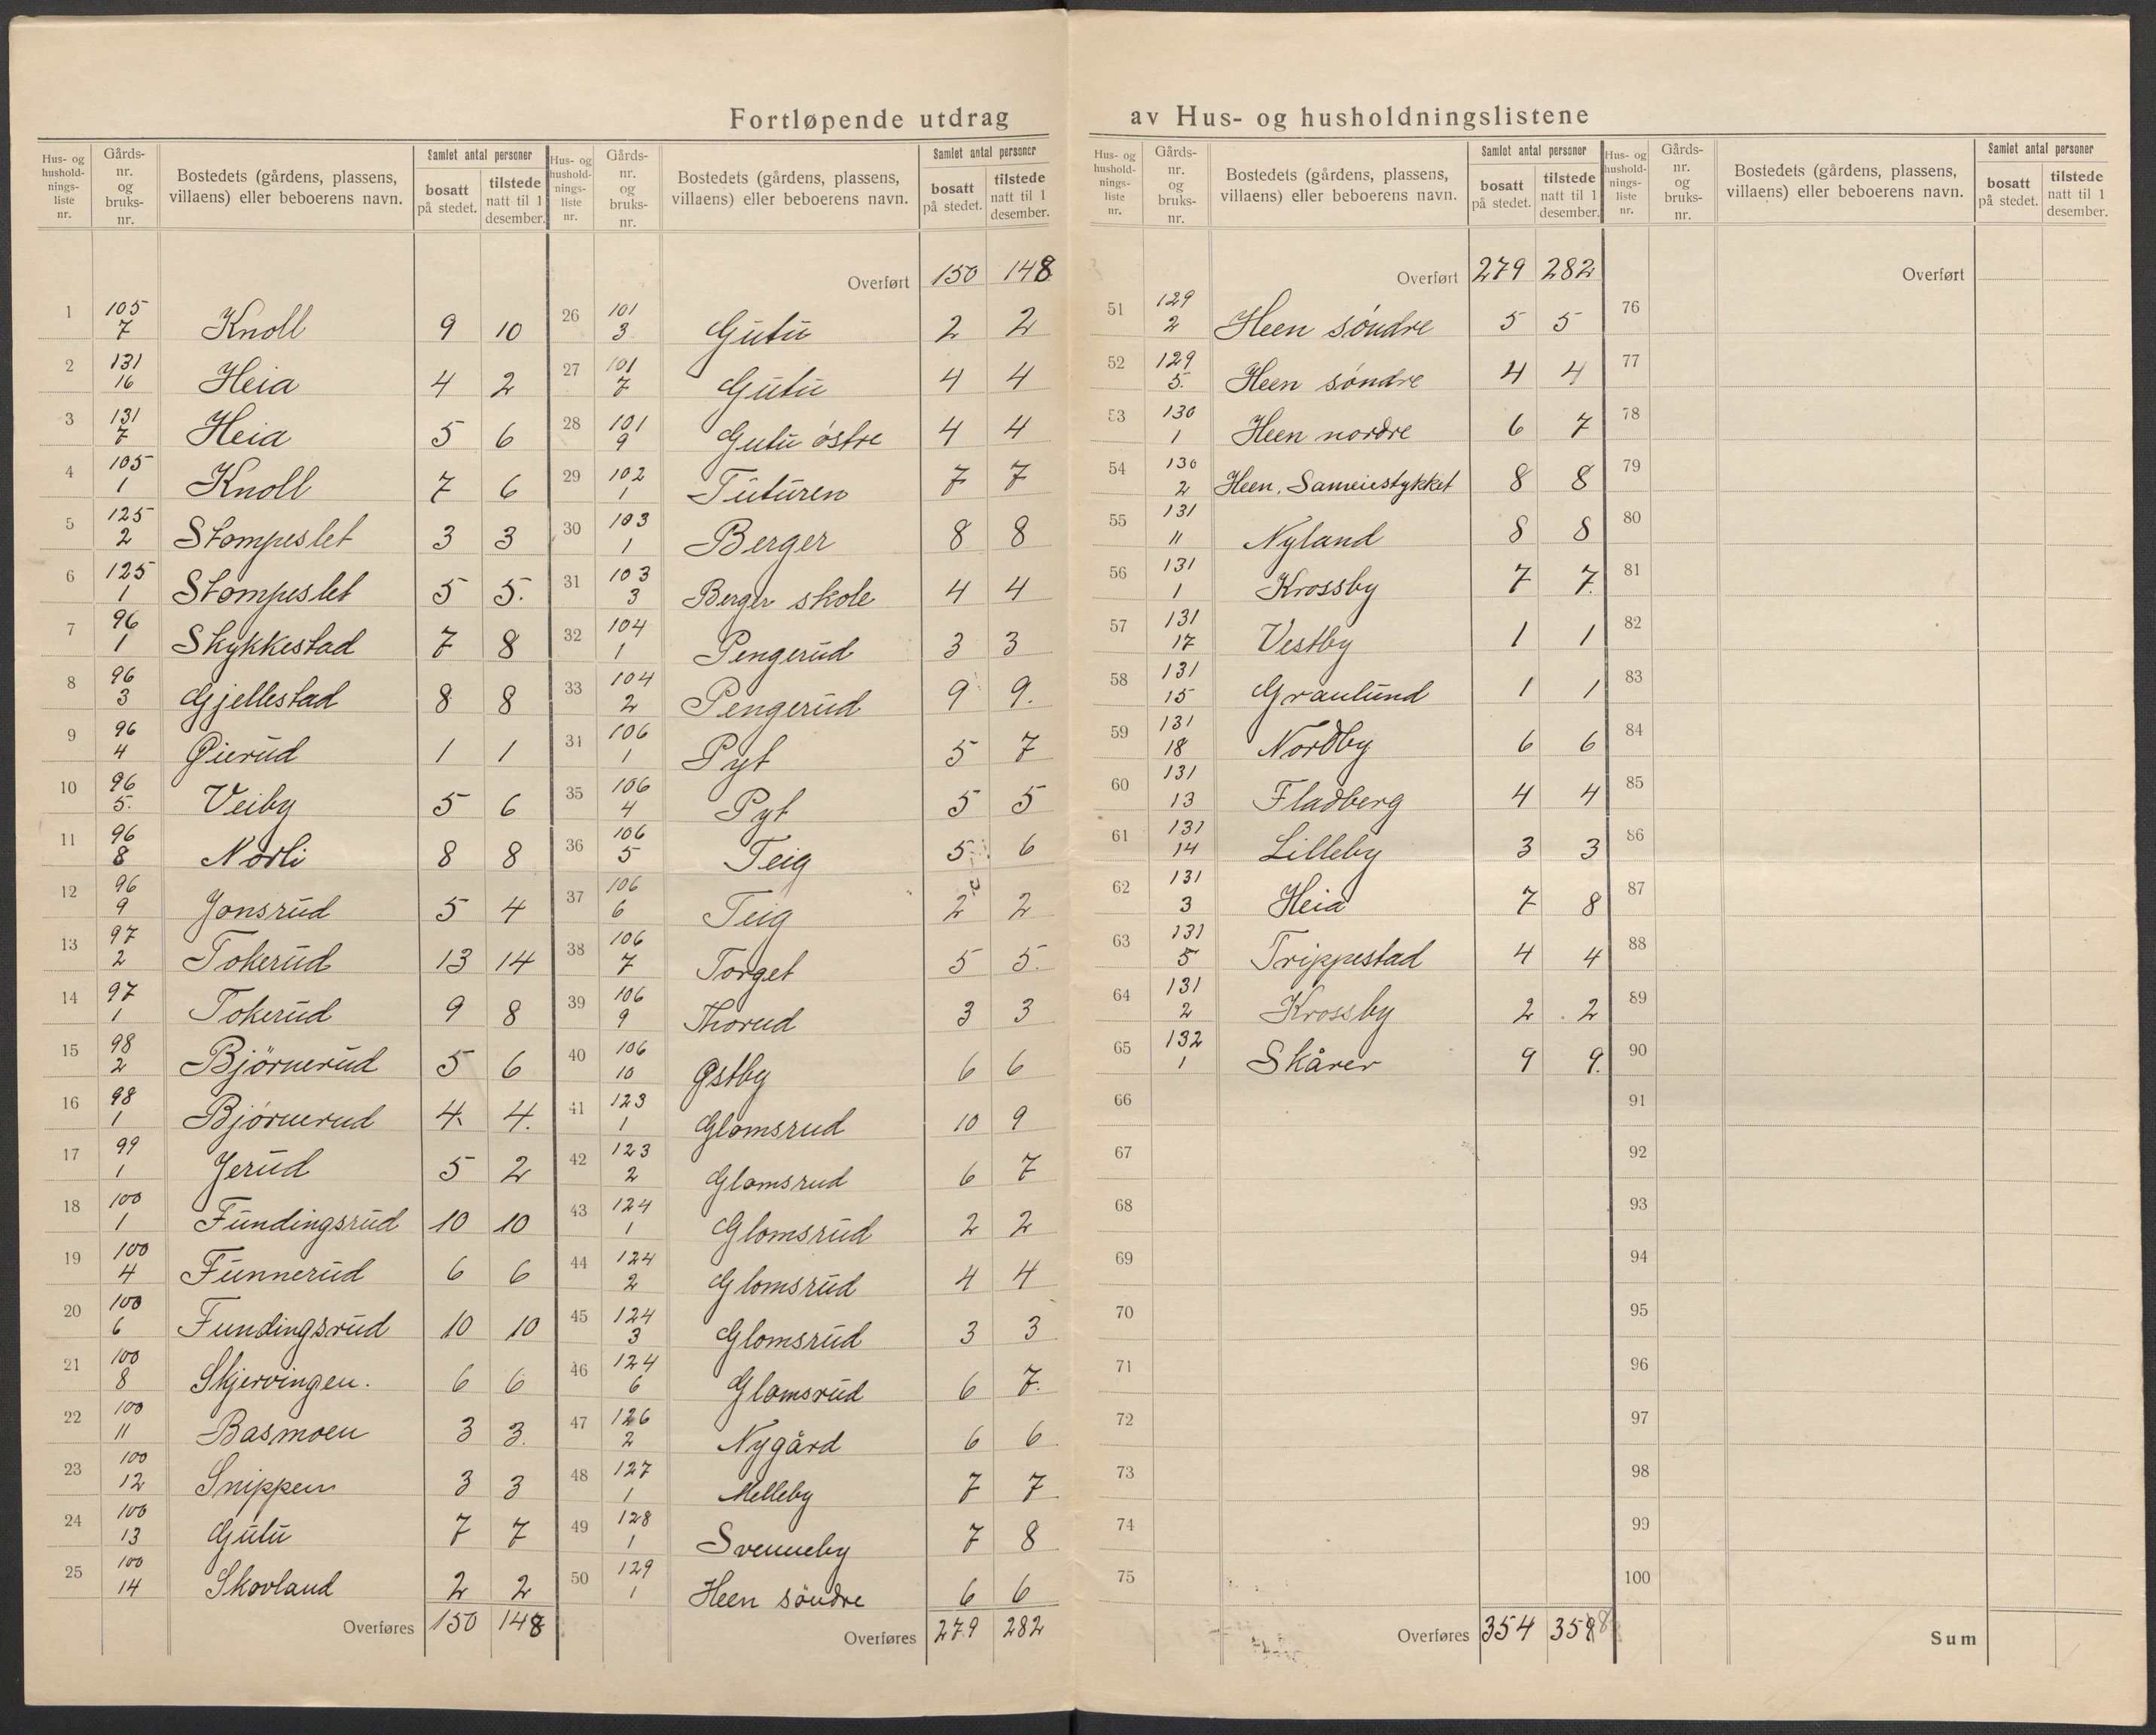 Fortløpende utdrag av Hus- og husholdningslistene
Hus- og husholdningsliste nr. | Gårdsnr. og bruksnr. | Bostedets (gårdens, plassens, villaens) eller beboerens navn. | Samlet antal personer bosatt på stedet. | tilstede natt til 1 desember.
1 105 7 Knoll 9 10
2 131 16 Heia 4 2
3 131 7 Heia 5 6
4 105 1 Knoll 7 6
5 125 2 Stompeslet 3 3
6 125 1 Stompeslet 5 5.
7 96 1 Skykkestad 7 8
8 96 3 Gjellestad 8 8
9 96 4 Øierud 1 1
10 96 5. Veiby 5 6
11 96 8 Norli 8 8
12 96 9 Jonsrud 5 4
13 97 2 Tokerud 13 14
14 97 1 Tokerud 9 8
15 98 2 Bjørnerud 5 6
16 98 1 Bjørnerud 4 4.
17 99 1 Jerud 5 2
18 100 1 Fundingsrud 10 10
19 100 4 Funnerud 6 6
20 100 6 Fundingsrud 10 10
21 100 8 Skjervingen. 6 6
22 100 11 Basmoen 3 3.
23 100 12 Snippen 3 3
24 100 13 Gutu 7 7
25 100 14 Skovland 2 2
Overføres 150 148
Hus- og husholdningsliste nr. | Gårdsnr. og bruksnr. | Bostedets (gårdens, plassens, villaens) eller beboerens navn. | Samlet antal personer bosatt på stedet. | tilstede natt til 1 desember.
Overført 150 148
26 101 3 Gutu 2 2
27 101 7 Gutu 4 4
28 101 9 Gutu østre 4 4
29 102 1 Tuturen 7 7
30 103 1 Berger 8 8
31 103 3 Berger skole 4 4
32 104 1 Pengerud 3 3
33 104 2 Pengerud 9 9.
34 106 1 Pyt 5 7
35 106 4 Pyt 5 5
36 106 5 Teig 5 6
37 106 6 Teig 2 2
38 106 7 Torget 5 5.
39 106 9 Thorud 3 3
40 106 10 Østby 6 6
41 123 1 Glomsrud 10 9
42 123 2 Glomsrud 6 7
43 124 1 Glomsrud 2 2
44 124 2 Glomsrud 4 4
45 124 3 Glomsrud 3 3
46 124 6 Glomsrud 6 7.
47 126 2 Nygård 6 6
48 127 1 Melleby 7 7
49 128 1 Svenneby 7 8
50 129 1 Heen søndre 6 6
Overføres 279 282
Hus- og husholdningsliste nr. | Gårdsnr. og bruksnr. | Bostedets (gårdens, plassens, villaens) eller beboerens navn. | Samlet antal personer bosatt på stedet. | tilstede natt til 1 desember.
Overført 279 282
51 129 2 Heen søndre 5 5
52 129 5. Heen søndre 4 4
53 130 1 Heen nordre 6 7
54 130 2 Heen, Sameiestykket 8 8
55 131 11 Nyland 8 8
56 131 1 Krossby 7 7.
57 131 17 Vestby 1 1
58 131 15 Granlund 1 1
59 131 18 Nordby 6 6
60 131 13 Fladberg 4 4
61 131 14 Lilleby 3 3
62 131 3 Heia 7 8
63 131 5 Trippestad 4 4
64 131 2 Krossby 2 2
65 132 1 Skårer 9 9.
66
67
68
69
70
71
72
73
74
75
Overføres 354 359
Hus- og husholdningsliste nr. | Gårdsnr. og bruksnr. | Bostedets (gårdens, plassens, villaens) eller beboerens navn. | Samlet antal personer bosatt på stedet. | tilstede natt til 1 desember.
Overført
76
77
78
79
80
81
82
83
84
85
86
87
88
89
90
91
92
93
94
95
96
97
98
99
100
Sum